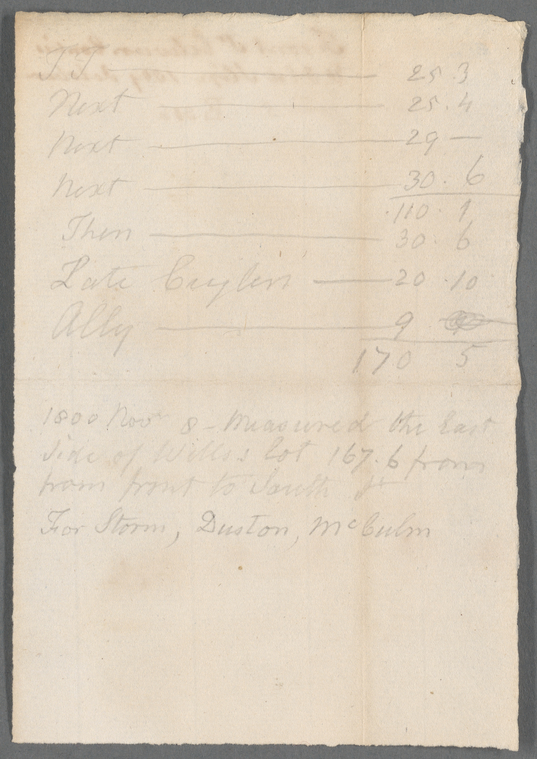 25.3
Next 25.4
Next 29 —
Next 30. 6
110 1
Then 30. 6
Late Cuylers 20. 10
Ally 9
170 5
1800 Nov 8 - Measured the East
side of Willss Lot 167.6 from
from front to South St
For Storm, Duston, McCulm